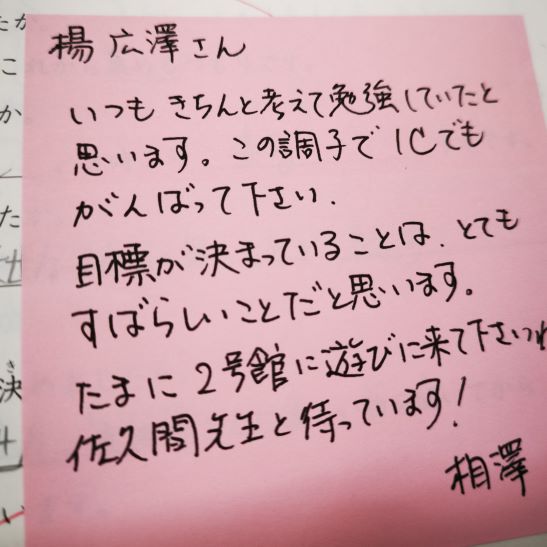 楊 広澤さん
いつも きちんと考えて勉強していたと
思います。この調子で 1Cでも
がんばって下さい.
目標が決まっていることは、とても
すばらしいことだと思います。
たまに 2号館に遊びに来て下さいね
佐久間先生と待っています!
相澤
たか
こ
か.
た
き
決
い